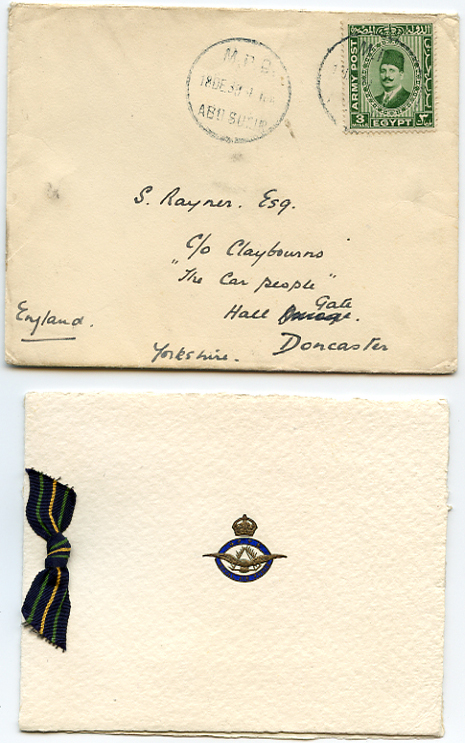 M.P.O.
18 DE 38
ABU SUEIR
ARMY POST
3
EGYPT
S. Rayner. Esq.
C/o Claybourns
"The Car people"
Hall Gate.
Doncaster
Yorkshire.
England.